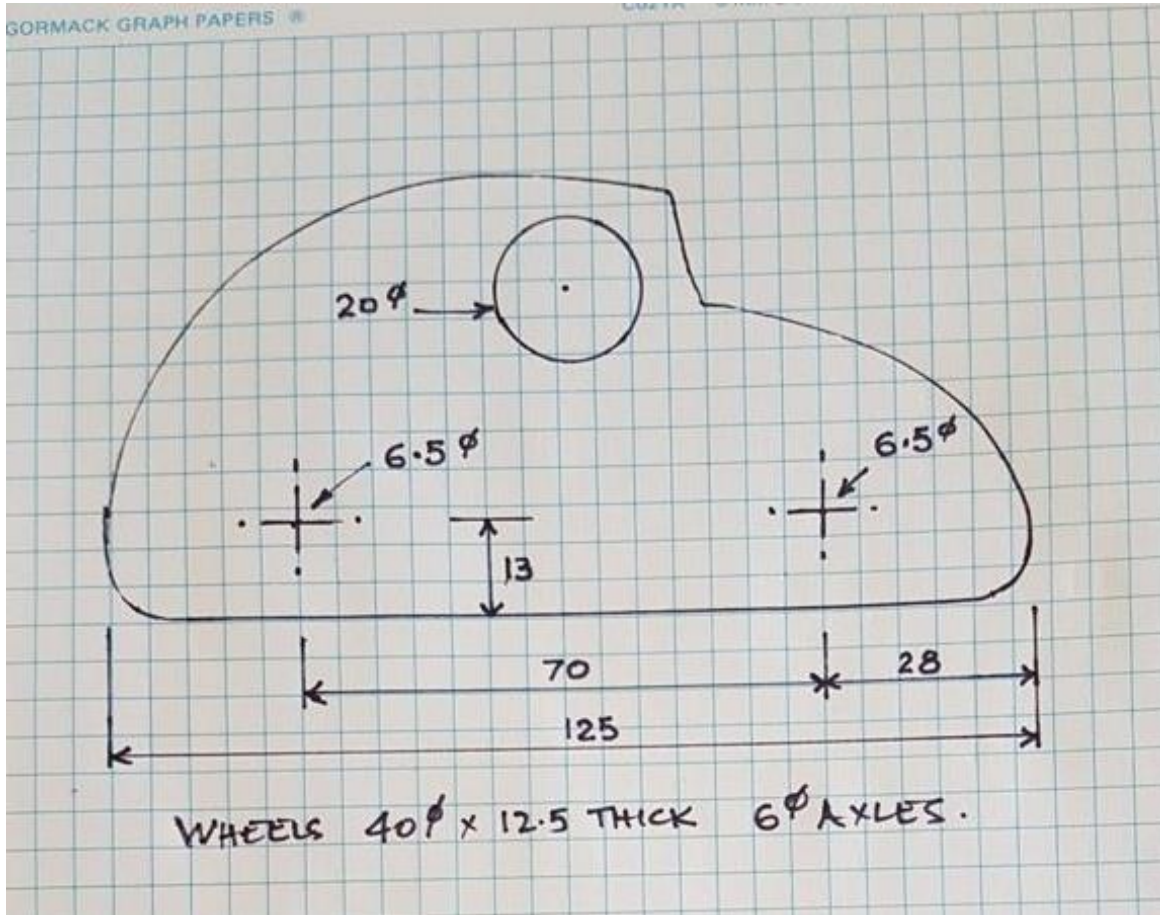 GORMACK GRAPH PAPERS ®
20 ⌀
6.5 ⌀
6.5 ⌀
13
70
28
125
WHEELS 40⌀ x 12.5 THICK 6⌀ AXLES.